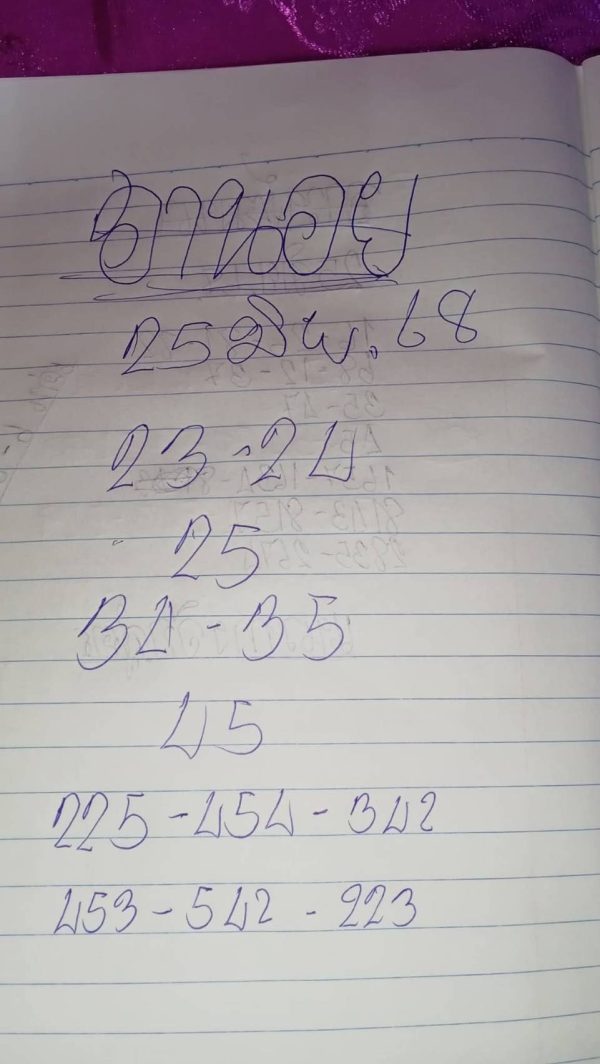 ฮานอย
25 มิย. 68
23-24
25
34-35
45
225-454-342
453-542-223